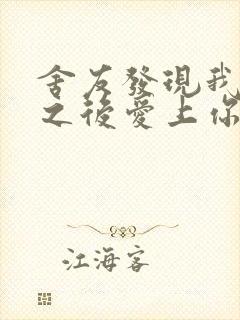 舍友發現我
之後愛上你
江海客